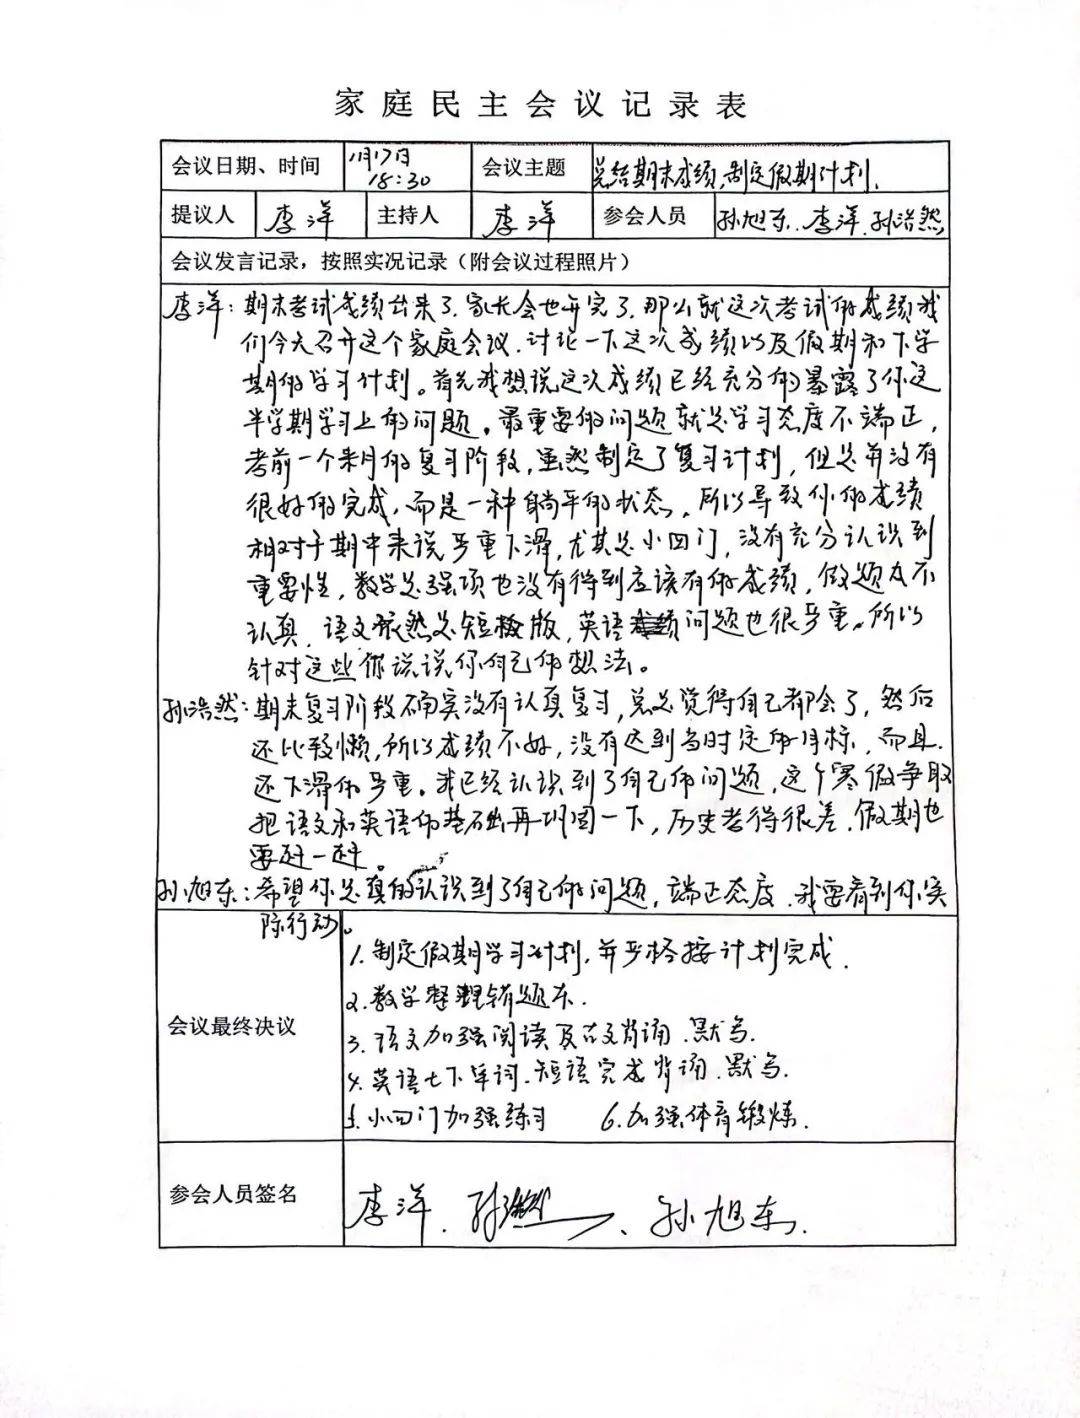 家庭民主会议记录表
会议日期、时间 1月17日 18:30 会议主题 总结期末成绩,制定假期计划.
提议人 李洋 主持人 李洋 参会人员 孙旭东、李洋、孙浩然
会议发言记录，按照实况记录（附会议过程照片）
李洋：期末考试成绩出来了、家长会也开完了,那么就这次考试的成绩我
们今天召开这个家庭会议.讨论一下这次成绩以及假期和下学
期的学习计划。首先我想说这次成绩已经充分的暴露了你这
半学期学习上的问题。最重要的问题就是学习态度不端正，
考前一个来月的复习阶段,虽然制定了复习计划，但是并没有
很好的完成,而是一种躺平的状态。所以导致你的成绩
相对于期中来说严重下滑,尤其是小四门，没有充分认识到
重要性，数学是强项也没有得到应该有的成绩，做题太不
认真、语文依然是短板,英语问题也很严重。所以
针对这些你说说你自己的想法。
孙浩然：期末复习阶段确实没有认真复习,总是觉得自己都会了，然后
还比较懒,所以成绩不好，没有达到当时定的目标、而且
还下滑的严重。我已经认识到了自己的问题，这个寒假争取
把语文和英语的基础再巩固一下，历史考得很差、假期也
要赶一赶。
孙旭东：希望你是真的认识到了自己的问题，端正态度、我要看到你实
际行动。
会议最终决议
1.制定假期学习计划,并严格按计划完成.
2.数学整理错题本.
3.语文加强阅读及古文背诵、默写.
4.英语七下单词、短语完成背诵、默写.
5.小四门加强练习 6.加强体育锻炼.
参会人员签名 李洋、孙浩然、孙旭东.